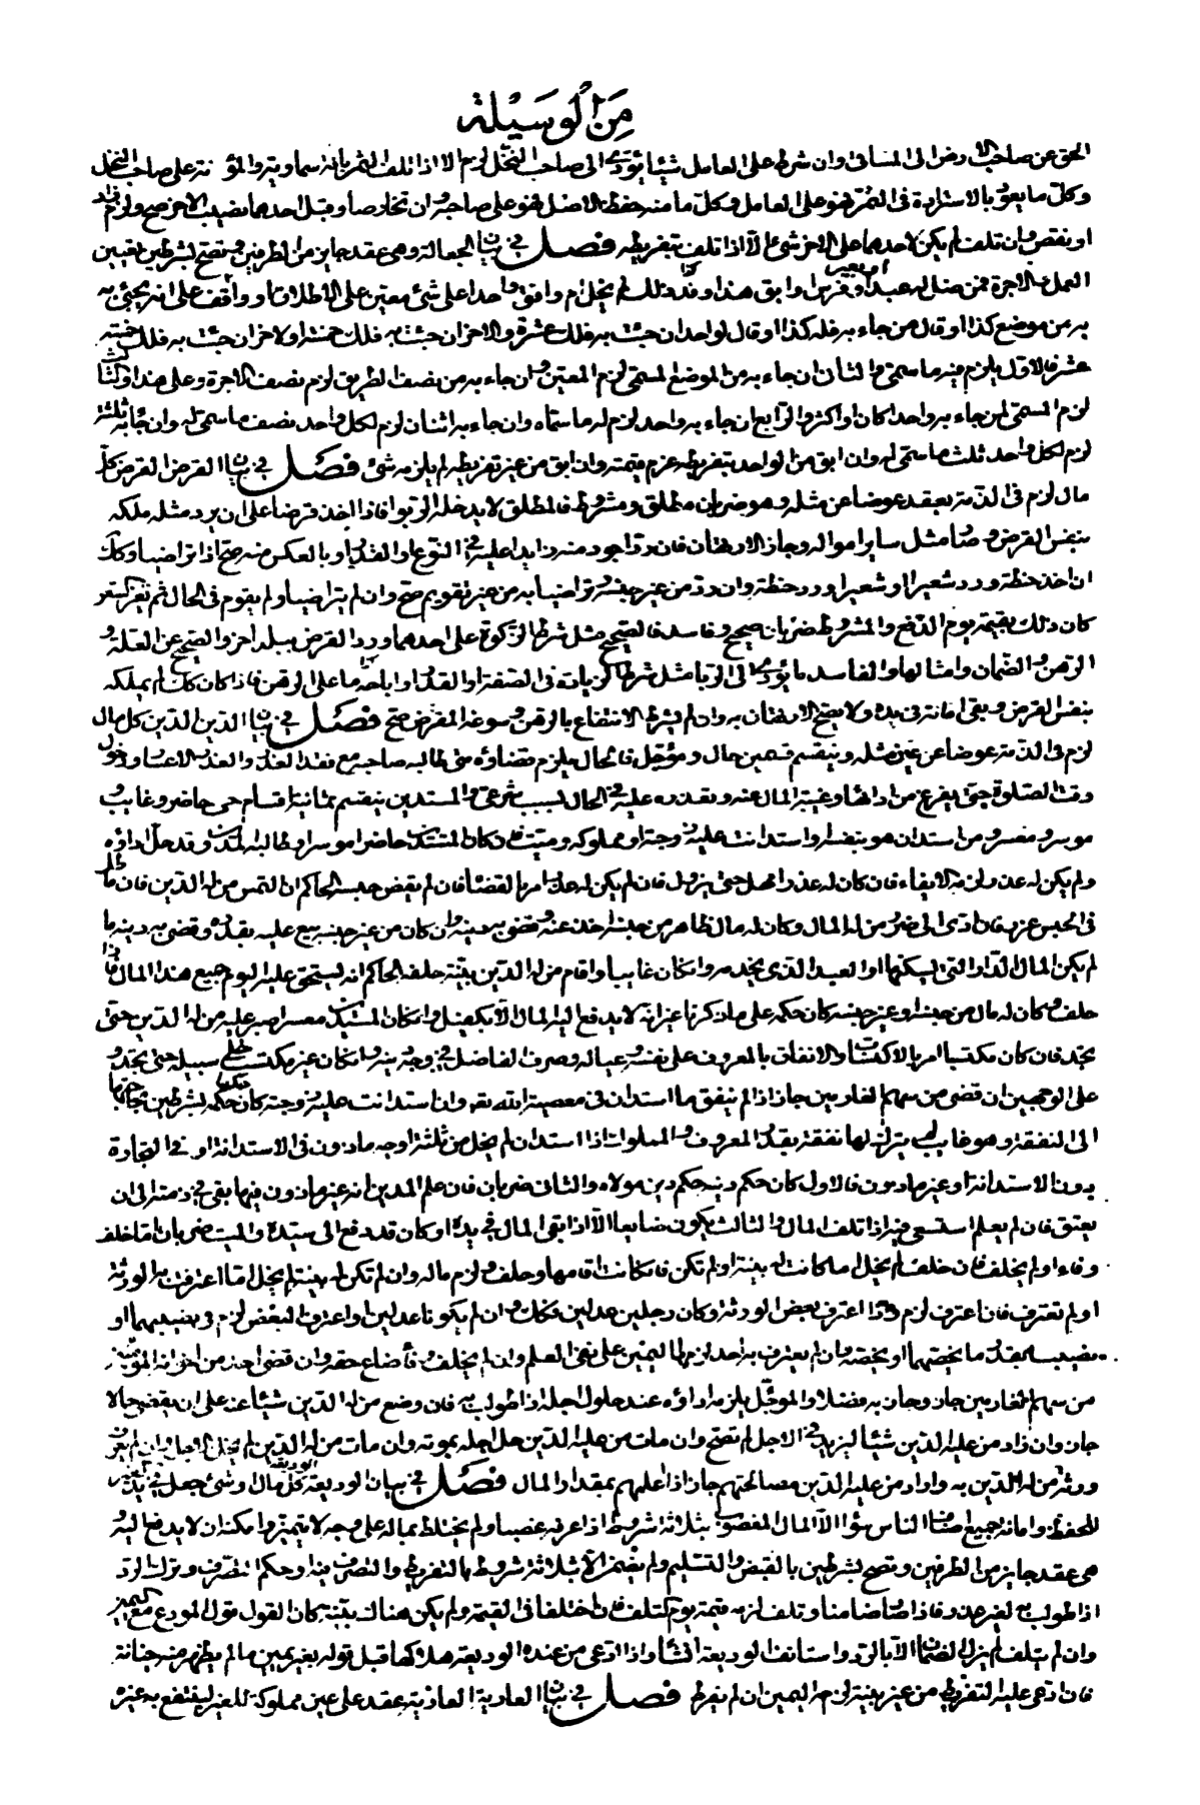 مِنَ الْوَسِيْلة
الحق عن صاحب الارض الى المساقى وان شرط على العامل شيئا يؤدى الى صاحب النخل لزم الا اذا تلف الثمر بافة سماوية والمؤنة على صاحب النخل
وكل ما يعود بالاستزادة فى الثمرة فهو على العامل وكل ما منه حفظ الاصل فهو على صاحبه وان تخارصا وقبل احدهما بنصيب الاخر صح ولزم فان زاد
او نقص وان تلف لم يكن لاحدهما على الاخر شئ الا اذا تلف بتفريطه فصل فى بيان الجعالة وهى عقد جايز من الطرفين وتصح بشرطين تعيين
العمل والاجرة فمن ضل له عبد او بعير او فرس او ابق هذا وند ذلك لم يخل ام وافق واحدا على شئ معين على الاطلاق او وافق على انه يجئ به
به من موضع كذا او قال من جاء به فله كذا او قال لواحد ان جئت به فلك عشرة والاخر ان جئت به فلك خمسة ولاخر ان جئت به فلك خمسة
عشر فالاول يلزم فيه ما سمى والثانى ان جاء به من الموضع المسمى لزم المعين وان جاء به من نصف الطريق لزم نصف الاجرة وعلى هذا والثالث
لزم المسمى لمن جاء به واحدا كان او اكثر والرابع ان جاء به واحد لزم له ما سماه وان جاء به اثنان لزم لكل واحد نصف ما سمى له وان جاء به ثلثة
لزم لكل واحد ثلث ما سمى له وان ابق من الواحد بتفريطه غرم قيمته وان ابق من غير تفريطه لم يلزمه شئ فصل فى بيان القرض القرض كل
مال لزم فى الذمة بعقد عوضا عن مثله وهو ضربان مطلق ومشروط فالمطلق لا يدخله الربوا فاذا اخذ قرضا على ان يرد مثله ملكه
بنفس القرض وصار مثل ساير امواله وجاز الارتهان فان رد اجود منه او زايدا عليه فى النوع او القدر او بالعكس منه صح اذا تراضيا وكذلك
ان اخذ حنطة ورد شعيرا او شعيرا ورد حنطة وان رد من غير جنسه وتراضيا به من غير تقويم صح وان لم يتراضيا ولم يقوم فى الحال ثم تغير السعر
كان ذلك بقيمته يوم الدفع والمشروط ضربان صحيح وفاسد فالصحيح مثل شرط الزكوة على احدهما ورد القرض ببلد اخر والصحيح عن الغلة و
الرهن والضمان وامثالها والفاسد ما يؤدى الى الربا مثل شرط الزيادة فى الصفة او القدر او اباحة ما على الرهن فاذا كان كذلك لم يملكه
بنفس القرض وبقى امانة فى يده ولا يصح الارتهان به وان لم يشرط الانتفاع بالرهن وسوغه المقرض صح فصل فى بيان الدين الدين كل مال
لزم فى الذمة عوضا عن غير مثله وينقسم قسمين حال ومؤجل فالحال يلزم قضاؤه متى طالبه صاحبه مع فقد العذر والعذر الاعسار ودخول
وقت الصلوة حتى يفرغ من ادائها وغيبة المال عنه وتعذره عليه فى الحال لسبب شرعى والمستدين ينقسم ثمانية اقسام حى حاضر وغايب و
موسر ومعسر ومن استدان هو بنفسه او استدانت عليه زوجته او مملوكه وميت فان كان المستدين حاضرا موسرا وطالبه المدين وقد حل اداؤه
ولم يكن له عذر لزمه الايفاء فان كان له عذر امهل حتى يزول فان لم يكن له عذر امر بالقضاء فان لم يقض حبسه الحاكم ان التمس من له الدين فان ماطل
فى الحبس عزره فان ادى الى ضرر من له المال وكان له مال ظاهر من جنسه اخذ عنه وقضى به دينه وان كان من غير جنسه بيع عليه بقدره وقضى به دينه ما
لم يكن المال الدار التى يسكنها او العبد الذى يخدمه وان كان غايبا واقام من له الدين بينة حلفه الحاكم انه ليستحق عليه اليوم جميع هذا المال فاذا
حلف وكان له مال من جنسه او غير جنسه كان حكمه على ما ذكرنا غير انه لا يدفع اليه المال الا بكفيل وان كان المستدين معسرا صبر عليه من له الدين حتى
يجد فان كان مكتسبا امر بالاكتساب والانفاق بالمعروف على نفسه وعياله وصرف الفاضل فى وجه دينه وان كان غير مكتسب خلى سبيله حتى يجد و
على الوجهين ان قضى من سهم الغارمين جاز اذا لم ينفق ما استدان فى معصية الله تعه وان استدانت عليه زوجته كان حكمه حكمها بشرطين حاجتها
الى النفقة وهو غايب لم يترك لها نفقة بقدر المعروف والمملوك اذا استدان لم يخل من ثلثة اوجه ماذون فى الاستدانة او فى التجارة
بدون الاستدانة او غير ماذون فالاول كان حكم دينه حكم دين مولاه والثانى ضربان فان علم المدين انه غير ماذون فيها بقى فى ذمته الى ان
يعتق فان لم يعلم استسعى فيه اذا تلف المال والثالث يكون ضايعا الا اذا بقى المال فى يده او كان قد دفع الى سيده والميت ضربان اما خلف
وفاء او لم يخلف فان خلف لم يخل اما كانت له بينة او لم تكن فان كانت اقامها وحلف ولزم ماله وان لم تكن له بينة لم يخل اما اعترف به الورثة
او لم تعترف فان اعترف لزم واذا اعترف بعض الورثة وكان رجلين عدلين فكذلك وان لم يكونا عدلين واعترف البعض لزم فى نصيبهما او
نصيبه بمقدار ما يخصهما او يخصه وان لم يعترف به احد لزمهم اليمين على نفى العلم وان لم يخلف وفاء ضاع حقه وان قضى احد من اخوانه المؤمنين
من سهم الغارمين جاز وجاد به فضلا والموجل يلزمه اداؤه عند حلول اجله اذا طولب به فان وضع من له الدين شيئا عنه على ان يقضيه حالا
جاز وان زاد من عليه الدين شيئا ليزيد فى الاجل لم تصح وان مات من عليه الدين حل اجله بموته وان مات من له الدين لم يحل الاجل وان لم يعرف
ورثة من له الدين به واراد من عليه الدين مصالحتهم جاز اذا علمهم بمقدار المال فصل فى بيان الوديعة الوديعة كل مال او شئ جعل فى يد غيره
للحفظ وامانة جميع اصناف الناس سواء الا المال المغصوب بثلاثة شروط اذا عرفه غصبا ولم يختلط بماله على وجه لا يتميز وامكنه ان لا يدفع اليه و
هى عقد جايز من الطرفين وتصح بشرطين بالقبض والتسليم ولم يضمن الا بثلاثة شروط بالتفريط والتصرف فيه او حكم التصرف وترك الرد
اذا طولب به لغير عذر فاذا صار ضامنا وتلف لزمه قيمته يوم التلف فان اختلفا فى القيمة ولم يكن هناك بينة كان القول قول المودع مع يمينه
وان لم يتلف لم يزل الضمان الا بالرد واستانف الوديعة انشاء واذا ادعى من عنده الوديعة هلاكها قبل قوله بغير يمين ما لم يظهر منه خيانة
فان ادعى عليه التفريط من غير بينة لزمه اليمين ان لم يفرط فصل فى بيان العارية العارية عقد على عين مملوكة للغير لينتفع به غيره